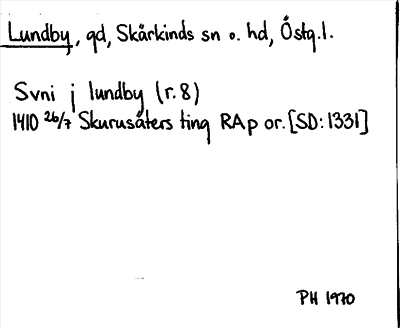 Lundby, gd, Skärkinds sn o. hd, Östg.l.
Svni j lundby (r.8)
1410 26/7 Skurusäters ting RAp or. [SD:1331]
PH 1970